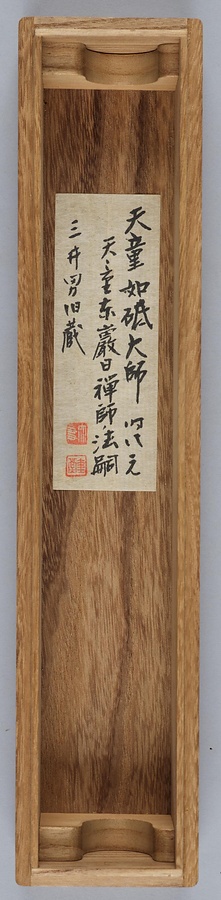 天童如砥大師 時代元
天童東巖日禅師法嗣
三井男旧蔵